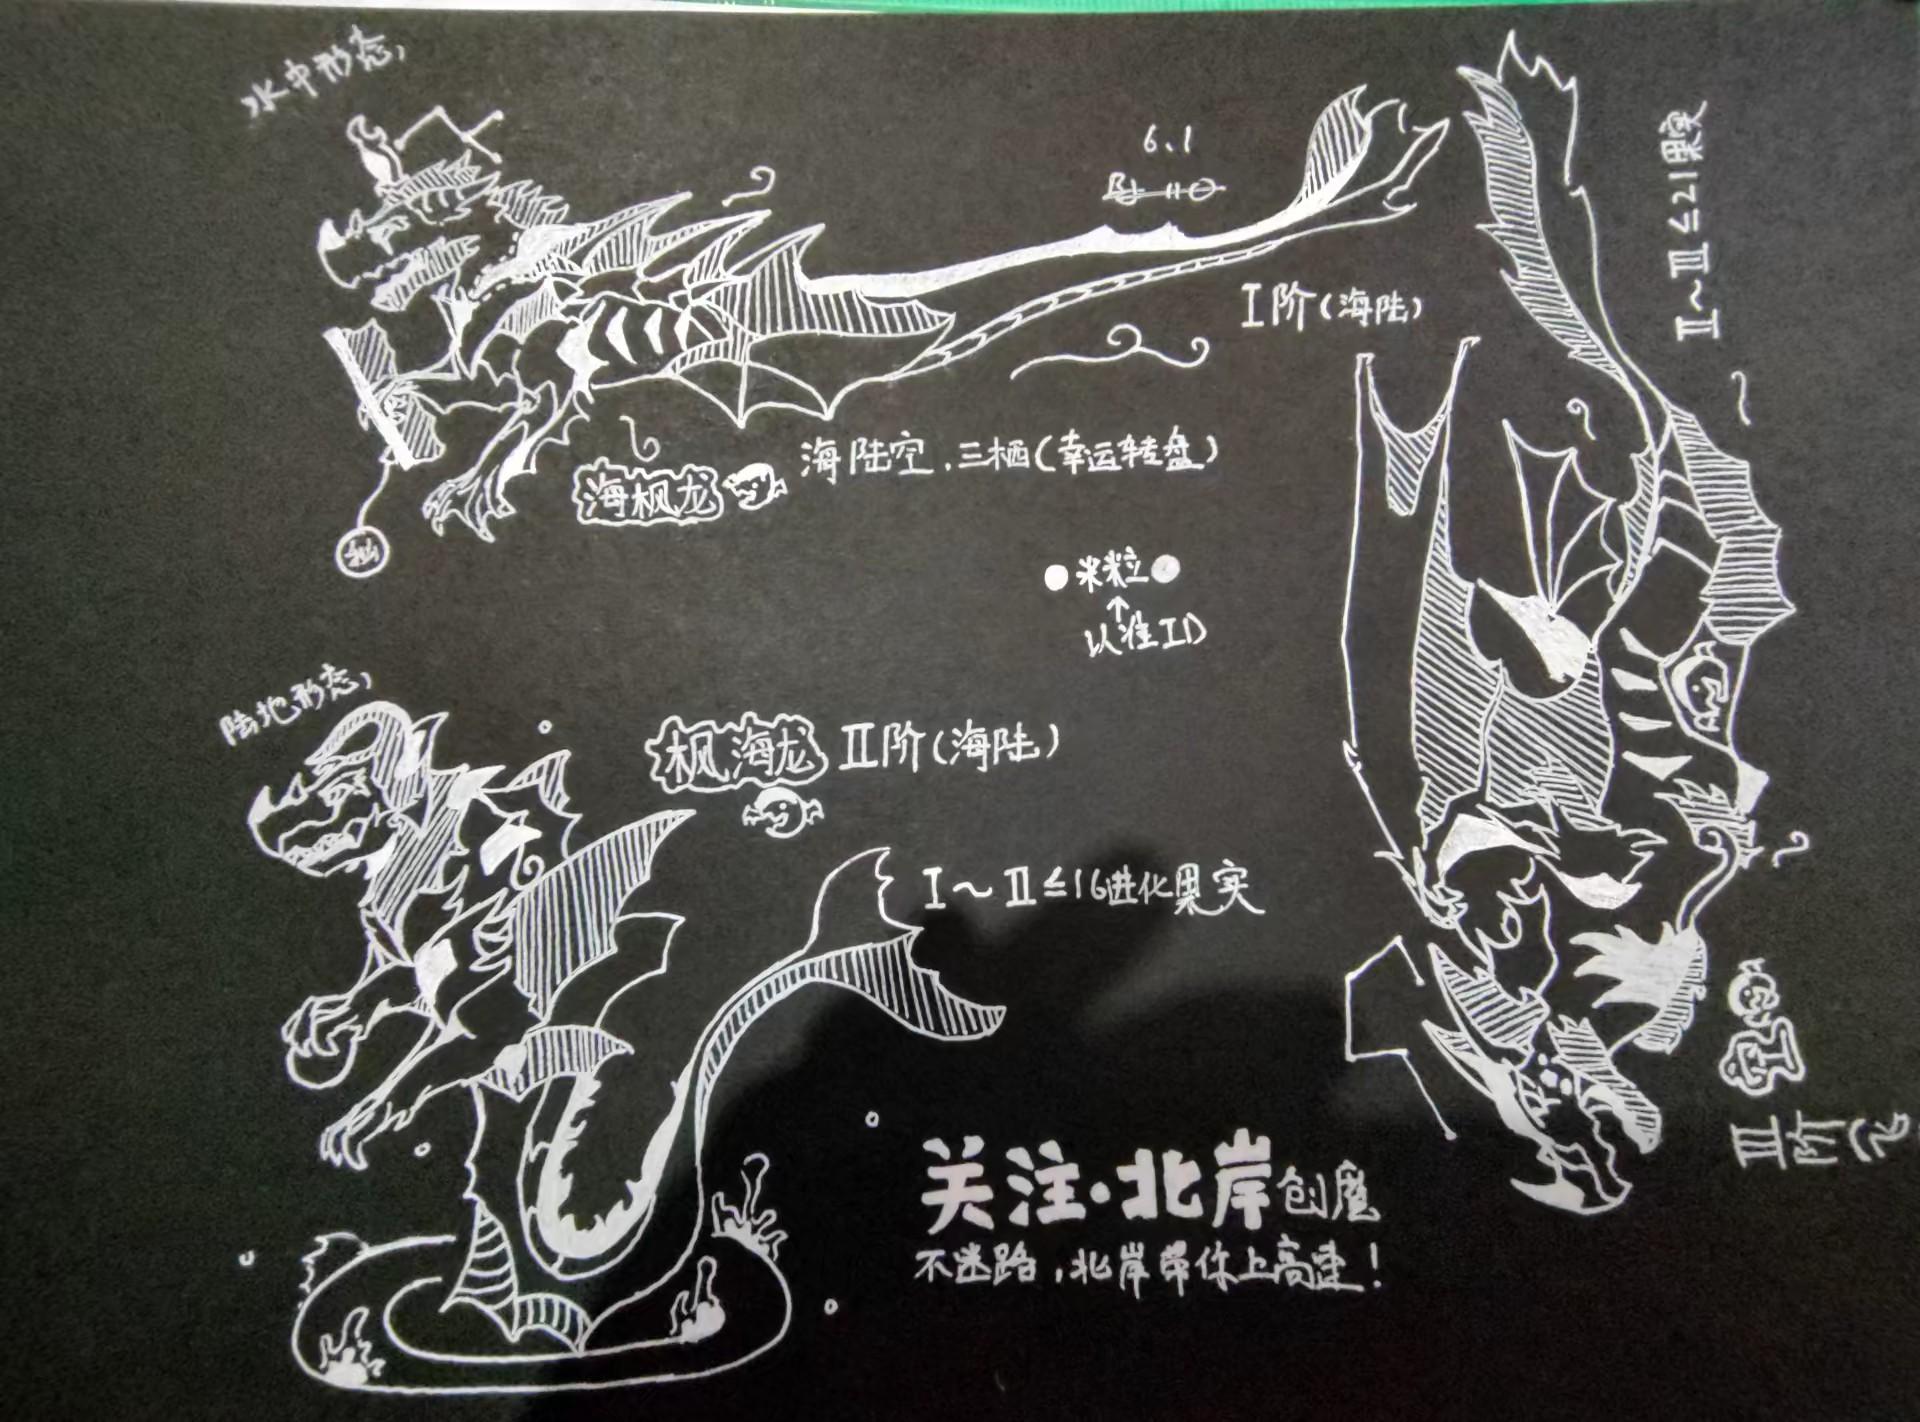 水中形态,
6.1
I阶(海陆)
II~III≤21果实
海枫龙
海陆空,三栖(幸运转盘)
米粒
↑
认准ID
陆地形态,
枫海龙 II阶(海陆)
I~II≤16进化果实
空
III阶 飞
关注·北岸创魔
不迷路,北岸带你上高速!